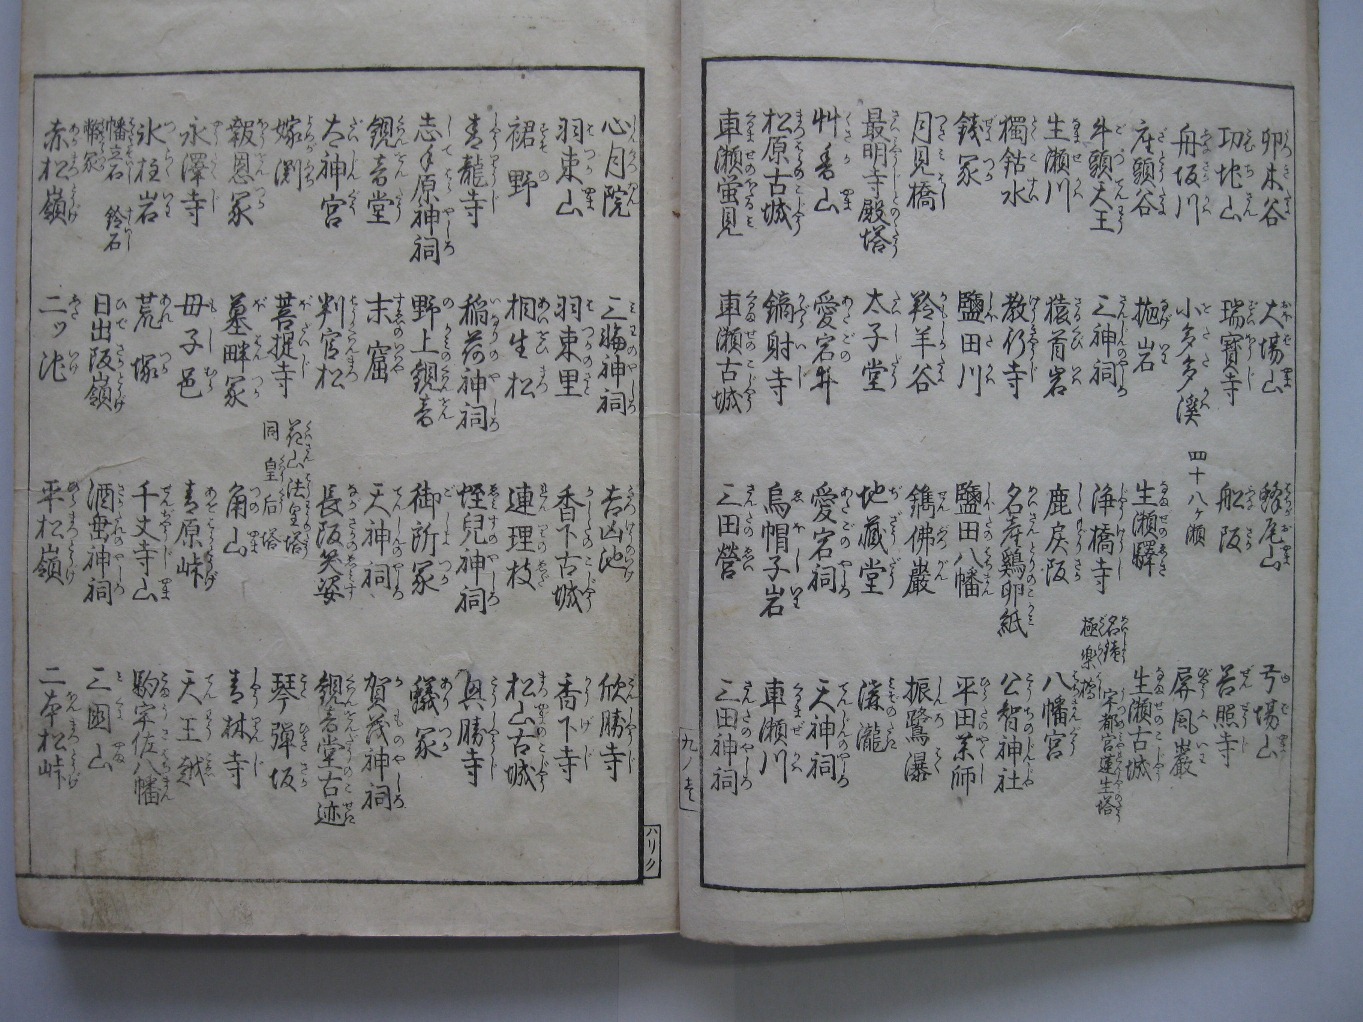 卯木谷 大場山 鷲尾山 弓場山
功地山 瑞寶寺 船阪 善照寺
舟坂川 小多多溪 四十八ヶ瀬 屏風巖
座頭谷 抛岩 生瀬驛 生瀬古城
牛頭天王 三神祠 浄橋寺 名鐘 極樂橋 宇都宮蓮生塔
生瀬川 猿首岩 鹿戻阪 八幡宮
獨鈷水 教行寺 名産鷄卵紙 公智神社
銭冢 鹽田川 鹽田八幡 平田薬師
月見橋 羚羊谷 鐫佛巖 振鷺瀑
最明寺殿塔 太子堂 地藏堂 溝瀧
艸香山 愛宕井 愛宕祠 天神祠
松原古城 鏑射寺 烏帽子岩 車瀬川
車瀬蛍見 車瀬古城 三田營 三田神祠
九ノ壱
心月院 三輪神祠 吉凶池 欣勝寺
羽束山 羽束里 香下古城 香下寺
裙野 相生松 連理枝 松山古城
青龍寺 稲荷神祠 蛭兒神祠 興勝寺
志手原神祠 野上観音 御所冢 蟻冢
観音堂 末窟 天神祠 賀茂神祠
大神宮 判官松 長阪笑姿 観音堂古迹
嫁渕 菩提寺 花山法皇塔 同皇后塔 琴彈坂
報恩冢 墓畔冢 角山 青林寺
永澤寺 母子邑 青原峠 天王越
氷柱岩 荒塚 千丈寺山 駒宇佐八幡
幡立石 鈴石 日出阪嶺 酒垂神祠 三國山
赤松嶺 二ツ池 平松嶺 二本松峠
ハリク